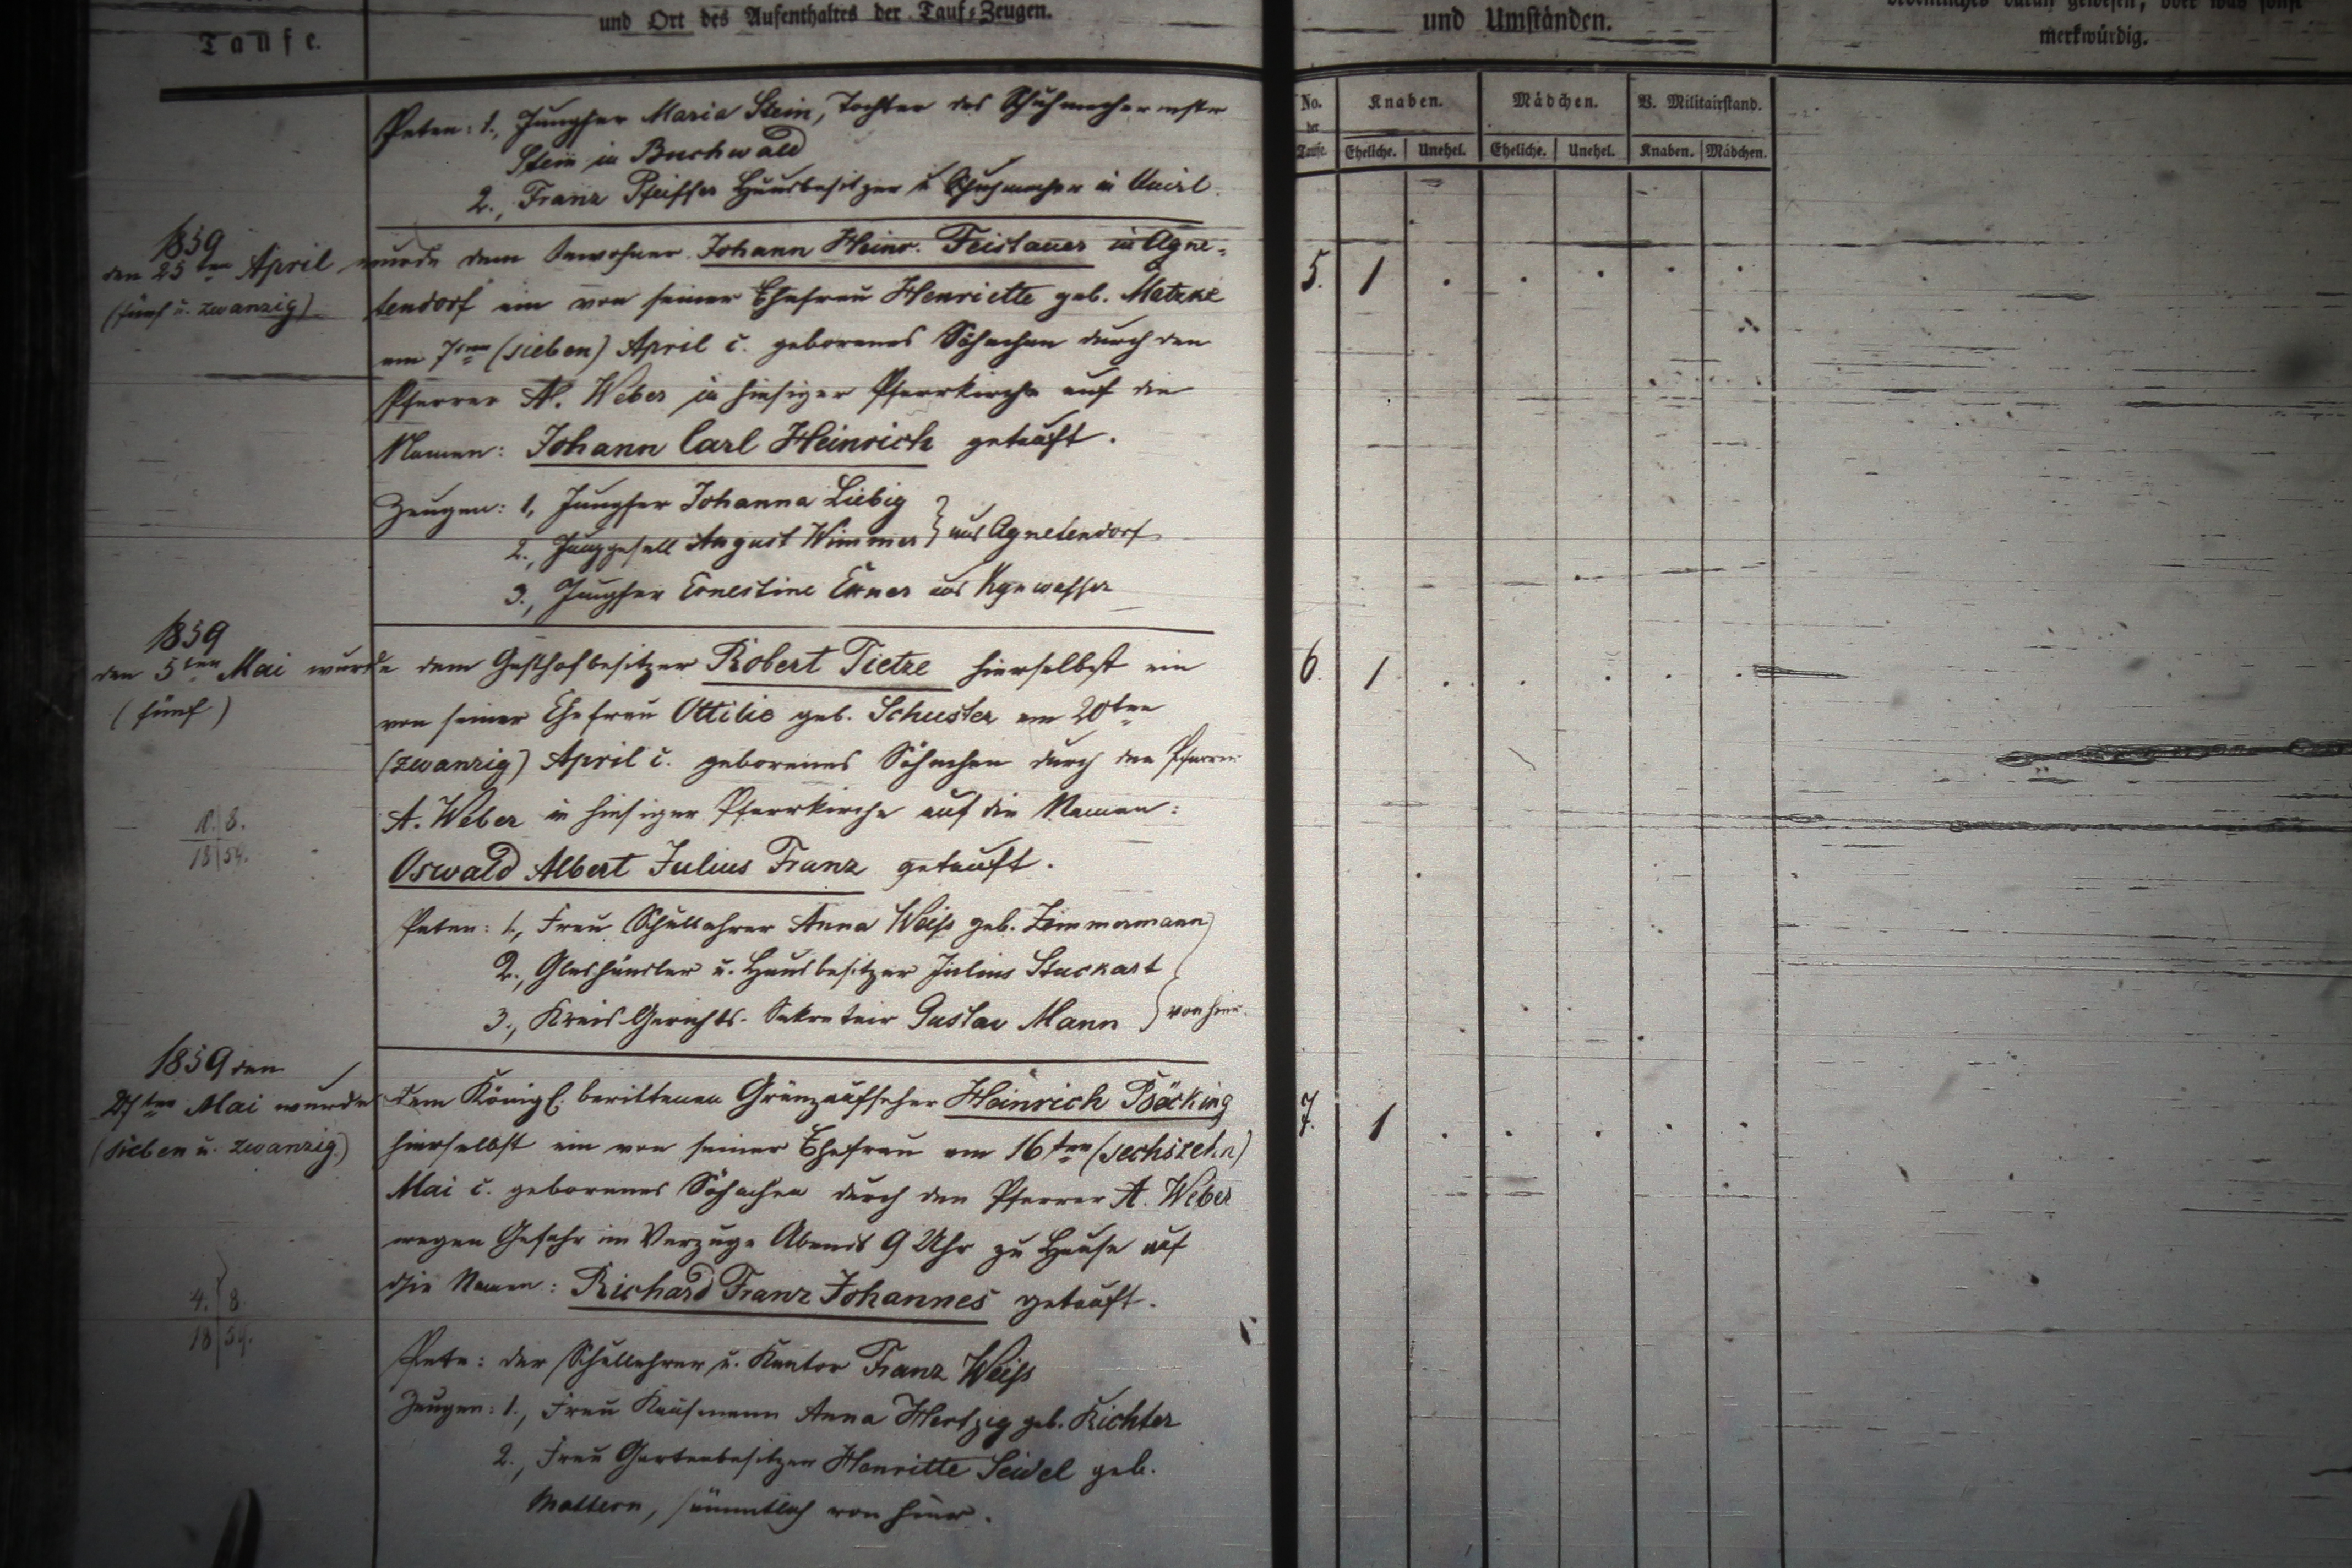 Taufe.
und Ort des Aufenthaltes der Tauf-Zeugen.
und Umständen.
merkwürdig.
No. der Taufe.
Knaben. Mädchen. V. Militairstand.
Eheliche. Unehel. Eheliche. Unehel. Knaben. Mädchen.
Paten: 1., Jungfer Maria Stein, Tochter des Schuhmachermstr
Stein in Buchwald
2., Franz Pfeiffer Hausbesitzer u Schuhmacher in
1859
den 25ten April wurde dem Inwohner Johann Heinr. Feistauer in Agne-
(fünf u. zwanzig)
tendorf ein von seiner Ehefrau Henriette geb. Matzke
am 7ten (sieben) April c. geborenes Söhnchen durch den
Pfarrer A. Weber in hiesiger Pfarrkirche auf die
Namen: Johann Carl Heinrich getauft.
Zeugen: 1, Jungfer Johanna Liebig
2., Junggesell August Wimmer } aus Agnetendorf
3., Jungfer Ernestine Exner aus
5. 1
1859
den 5ten Mai wurde dem Gasthofbesitzer Robert Tietze hierselbst ein
(fünf)
von seiner Ehefrau Ottilie geb. Schuster am 20ten
(zwanzig) April c. geborenes Söhnchen durch den Pfarrer
A. Weber in hiesiger Pfarrkirche auf die Namen:
Oswald Albert Julius Franz getauft.
Paten: 1., Frau Schullehrer Anna Weiß geb. Zimmermann
2., Glashändler u. Hausbesitzer Julius Stuckart
3., Kreis-Gerichts-Sekretair Gustav Mann } von hier.
6. 1
1859 den
27ten Mai wurde dem Königl. berittenen Gränzaufseher Heinrich Böcking
(sieben u. zwanzig)
hierselbst ein von seiner Ehefrau am 16ten (sechszehn)
Mai c. geborenes Söhnchen durch den Pfarrer A. Weber
wegen Gefahr im Verzuge Abends 9 Uhr zu Hause auf
die Namen: Richard Franz Johannes getauft.
4. 8.
18 59.
Pate: der Schullehrer u. Kantor Franz Weiß
Zeugen: 1., Frau Kaufmann Anna Hertzig geb. Richter
2., Frau Gartenbesitzer Henriette Seidel geb.
Mattern, sämmtlich von hier.
7. 1